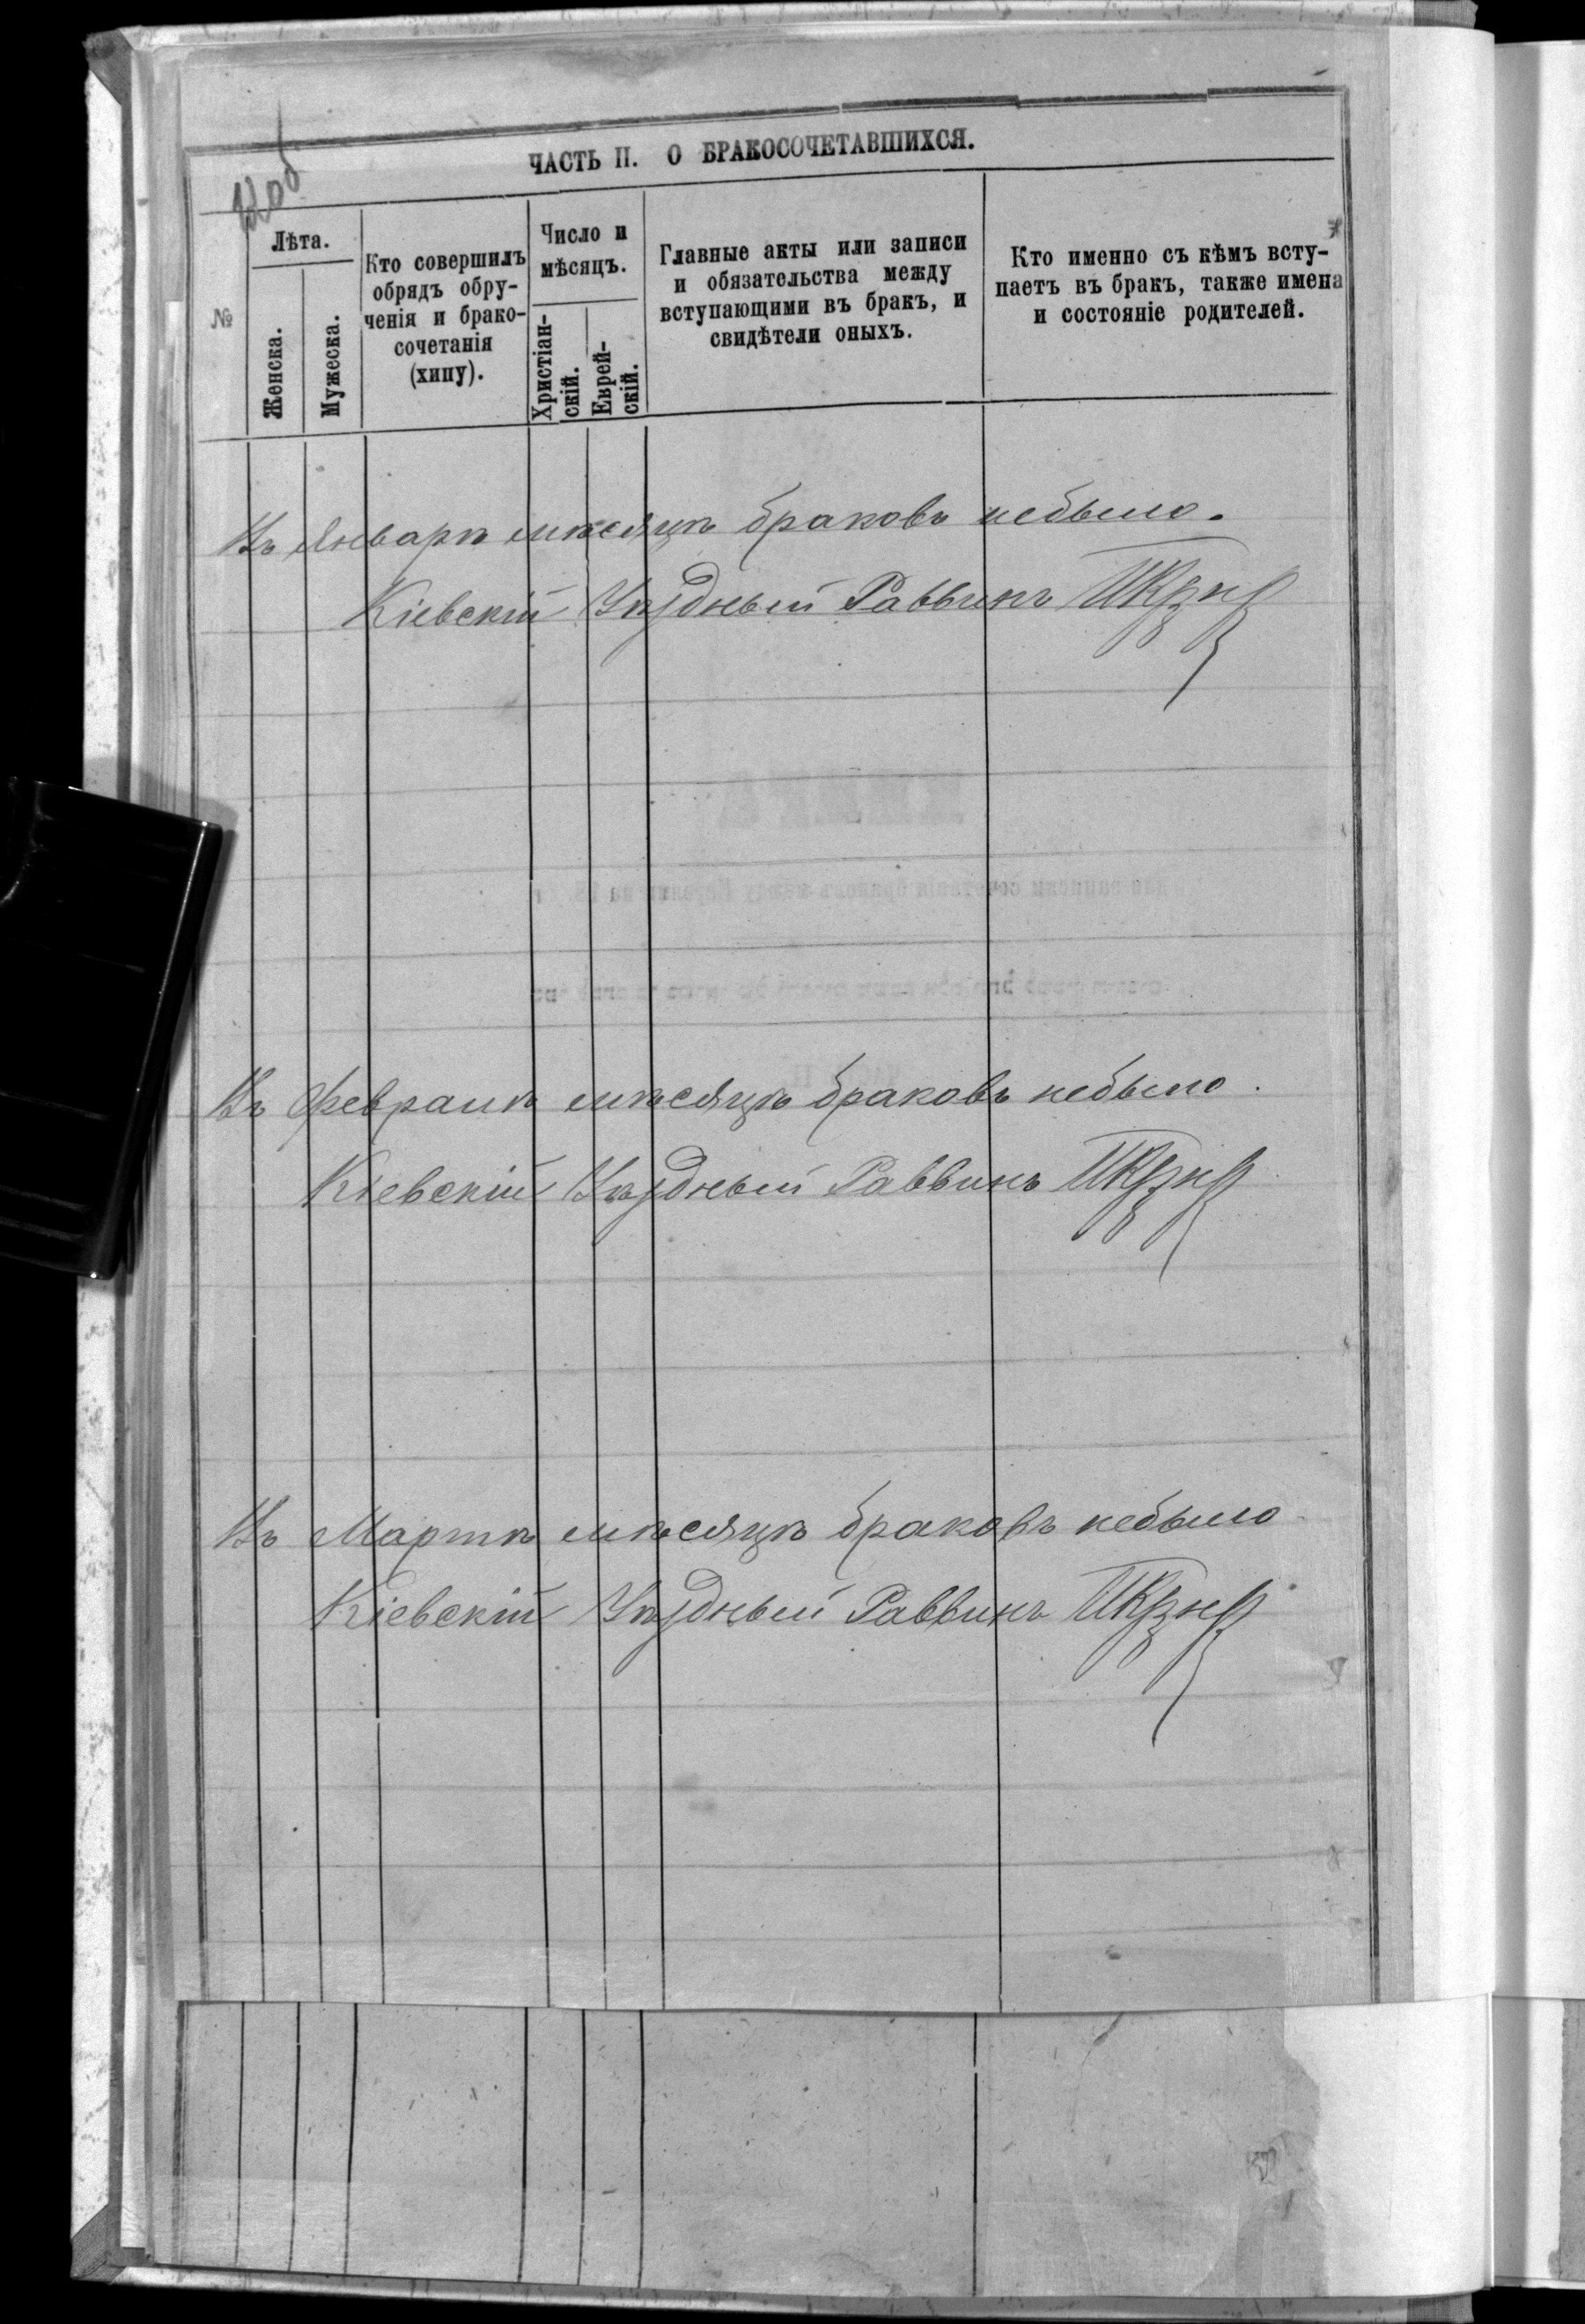 ЧАСТЬ II. О БРАКОСОЧЕТАВШИХСЯ.
№
Лѣта.
Женска.
Мужеска.
Кто совершилъ
обрядъ обру-
ченія и брако-
сочетанія
(хипу).
Число и
мѣсяцъ.
Христіан-
скій.
Еврей-
скій.
Главные акты или записи
и обязательства между
вступающими въ бракъ, и
свидѣтели оныхъ.
Кто именно съ кѣмъ всту-
паетъ въ бракъ, также имена
и состояніе родителей.
Въ Январѣ мѣсяцѣ браковъ небыло.
Кіевскій Уѣздный Раввинъ
Въ Февралѣ мѣсяцѣ браковъ небыло.
Кіевскій Уѣздный Раввинъ
Въ Мартѣ мѣсяцѣ браковъ небыло
Кіевскій Уѣздный Раввинъ